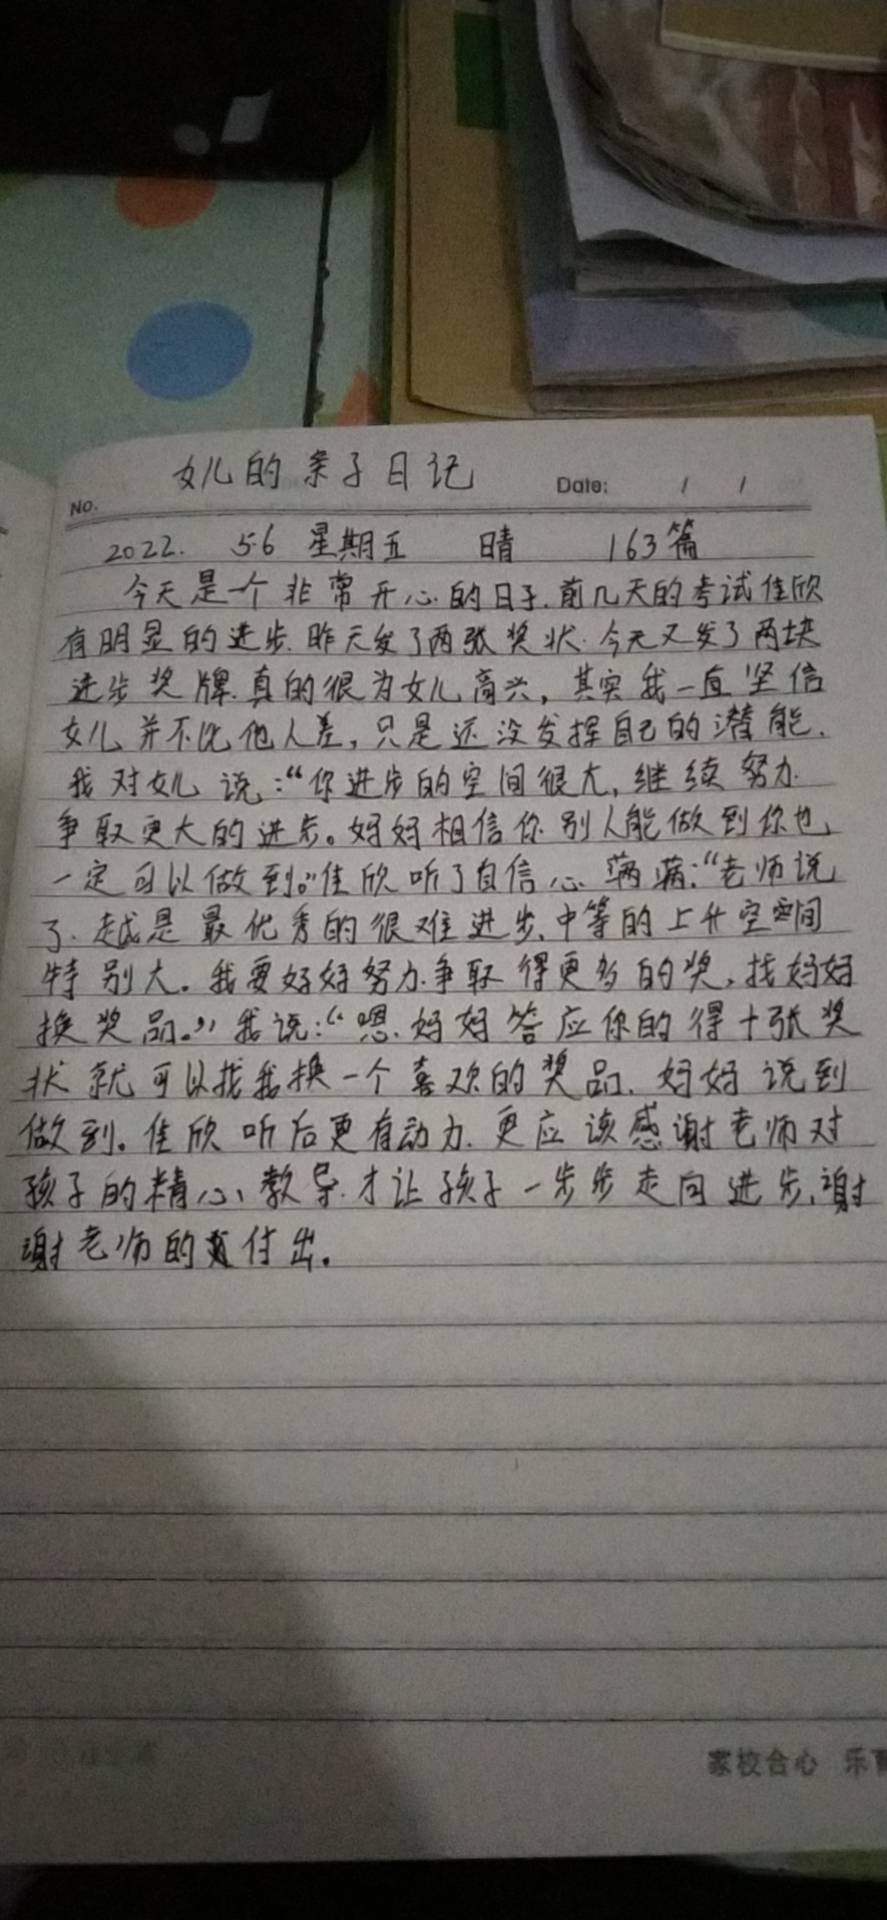 女儿的亲子日记
No.
Date: / /
2022. 5.6 星期五 晴 163篇
今天是一个非常开心的日子.前几天的考试佳欣
有明显的进步.昨天发了两张奖状.今天又发了两块
进步奖牌.真的很为女儿高兴，其实我一直坚信
女儿并不比他人差，只是还没发挥自己的潜能.
我对女儿说：“你进步的空间很大，继续努力.
争取更大的进步。妈妈相信你.别人能做到你也
一定可以做到。”佳欣听了自信心满满：“老师说
了.越是最优秀的很难进步、中等的上升空间
特别大。我要好好努力.争取得更多的奖，找妈妈
换奖品。”我说：“嗯.妈妈答应你的得十张奖
状就可以找我换一个喜欢的奖品.妈妈说到
做到。佳欣听后更有动力.更应该感谢老师对
孩子的精心教导.才让孩子一步步走向进步、谢
谢老师的付出。
家校合心 乐